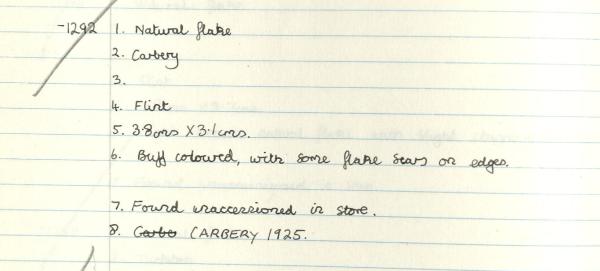 -1292 1. Natural flake
2. Carbery
3.
4. Flint
5. 3.8cms X 3.1cms.
6. Buff coloured, with some flake scars on edges.
7. Found unaccessioned in store.
8. Carbe CARBERY 1925.